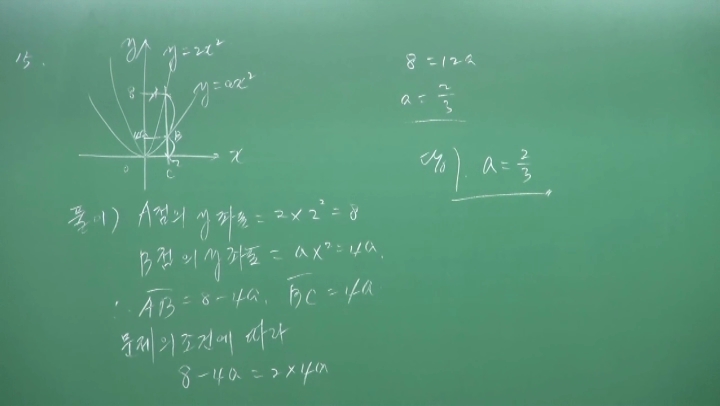 15.
y
y=2x²
y=ax²
8 A
4a B
0 2 x
C
풀이) A점의 y좌표=2×2²=8
B점의 y좌표=a×2²=4a.
∴ AB=8-4a. BC=4a
문제의 조건에 따라
8-4a=2×4a
8=12a
a=2/3
답). a=2/3